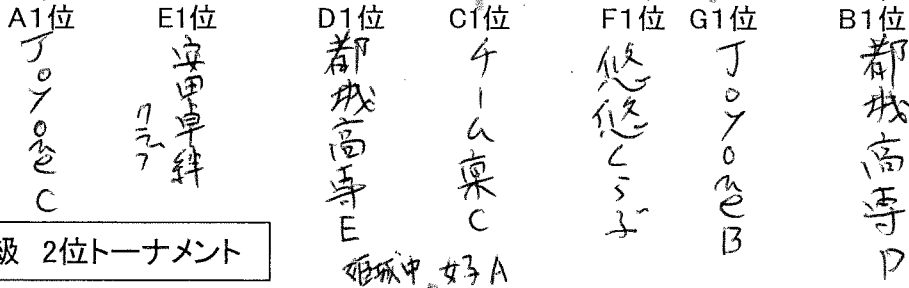 A1位 E1位 D1位 C1位 F1位 G1位 B1位
JoyoneC
安田卓絆
クラブ
都城高専E
チーム稟C
悠悠くらぶ
JoyoneB
都城高専D
級 2位トーナメント
姫城中 女子A